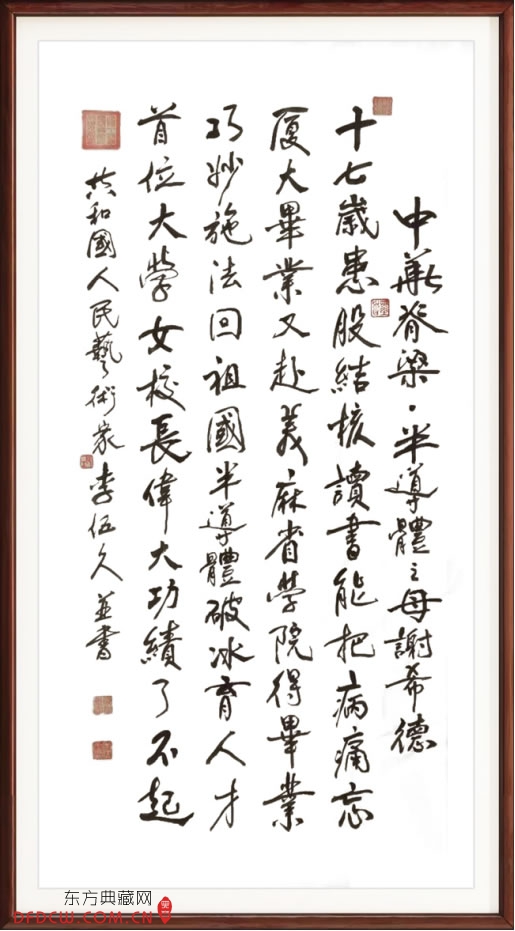 中華脊梁·半導體之母謝希德
十七歲患股結核讀書能把病痛忘
厦大畢業又赴美麻省學院得畢業
巧妙施法回祖國半導體破冰育人才
首位大學女校長偉大功績了不起
共和國人民藝術家李伍久並書
东方典藏网
DFDCW.COM.CN